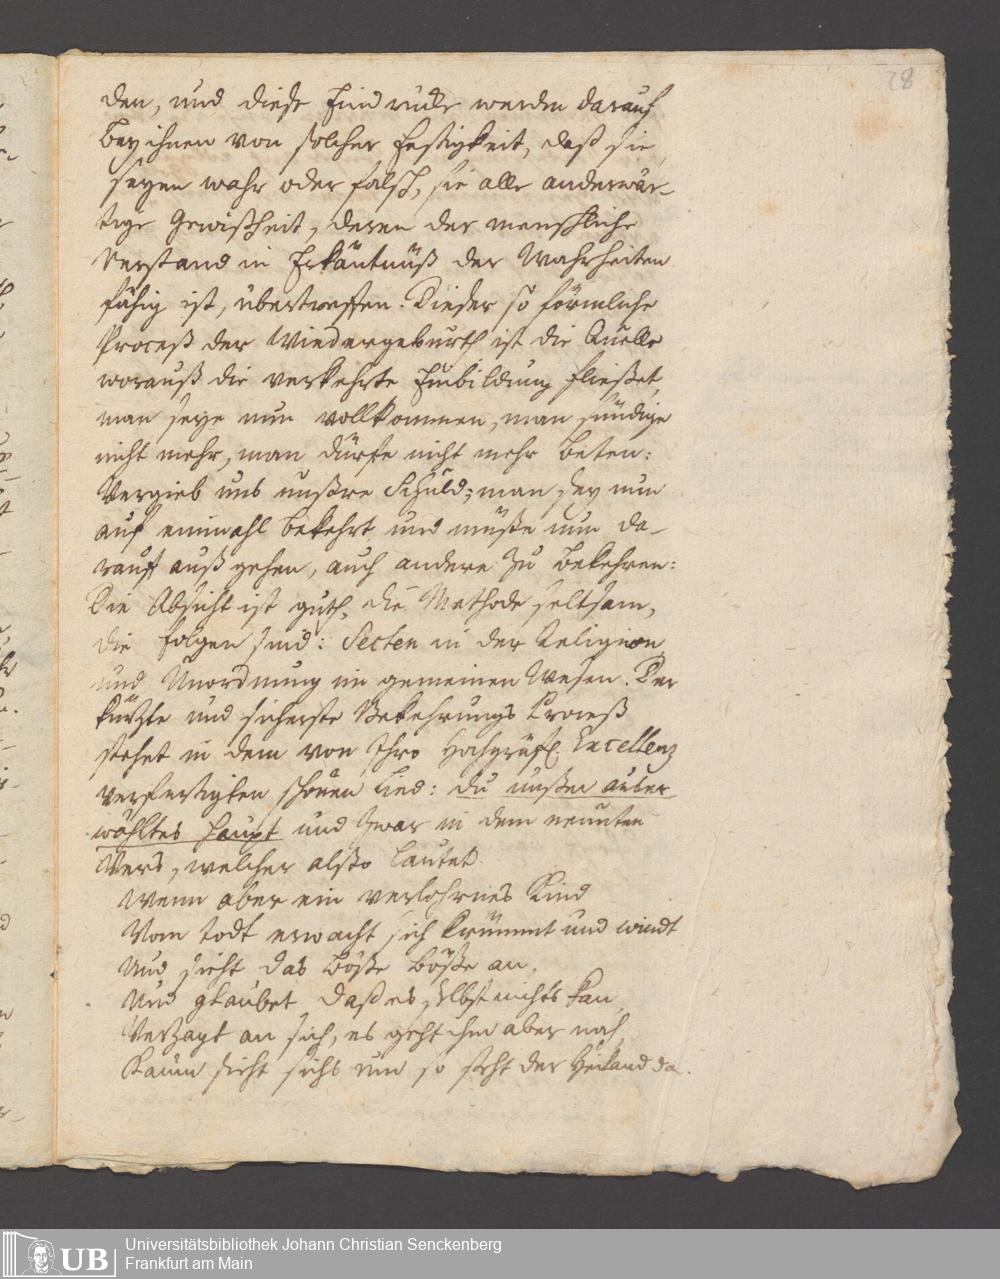 28
den, und diese Eindrücke werden darauf
bey ihnen von solcher Festigkeit, daß sie,
seyen wahr oder falsch, sie alle anderwär-
tige Gewißheit, deren der menschliche
Verstand in Erkäntnüß der Wahrheiten
fähig ist, übertreffen. Dieser so förmliche
Proceß der Wiedergeburth ist die Quelle
worauß die verkehrte Einbildung fließet,
man seye nun vollkommen, man sündige
nicht mehr, man dürfe nicht mehr beten:
Vergieb uns unßre Schuld; man sey nun
auf einmahl bekehrt und müße nun da-
rauff außgehen, auch andere zu bekehren:
Die Absicht ist guth, die Methode seltsam,
die Folgen sind: Secten in der Religion
und Unordnung im gemeinen Wesen. Der
kürtzte und sicherste Bekehrungs Proceß
stehet in dem von Ihro Hochgräfl. Excellenz
verfertigten schönen Lied: du unßer außer
wöhltes Haupt und zwar in dem neunten
Vers, welcher alßo lautet:
Wenn aber ein verlohrnes Kind
Vom todt erwacht sich krümmt und windt
Und sieht das Böße böße an,
Und glaubet daß es selbst nichts kan,
Verzagt an sich, es geht ihm aber nah,
Kaum sieht sichs um so steht der Heiland da.
Universitätsbibliothek Johann Christian Senckenberg
Frankfurt am Main
UB